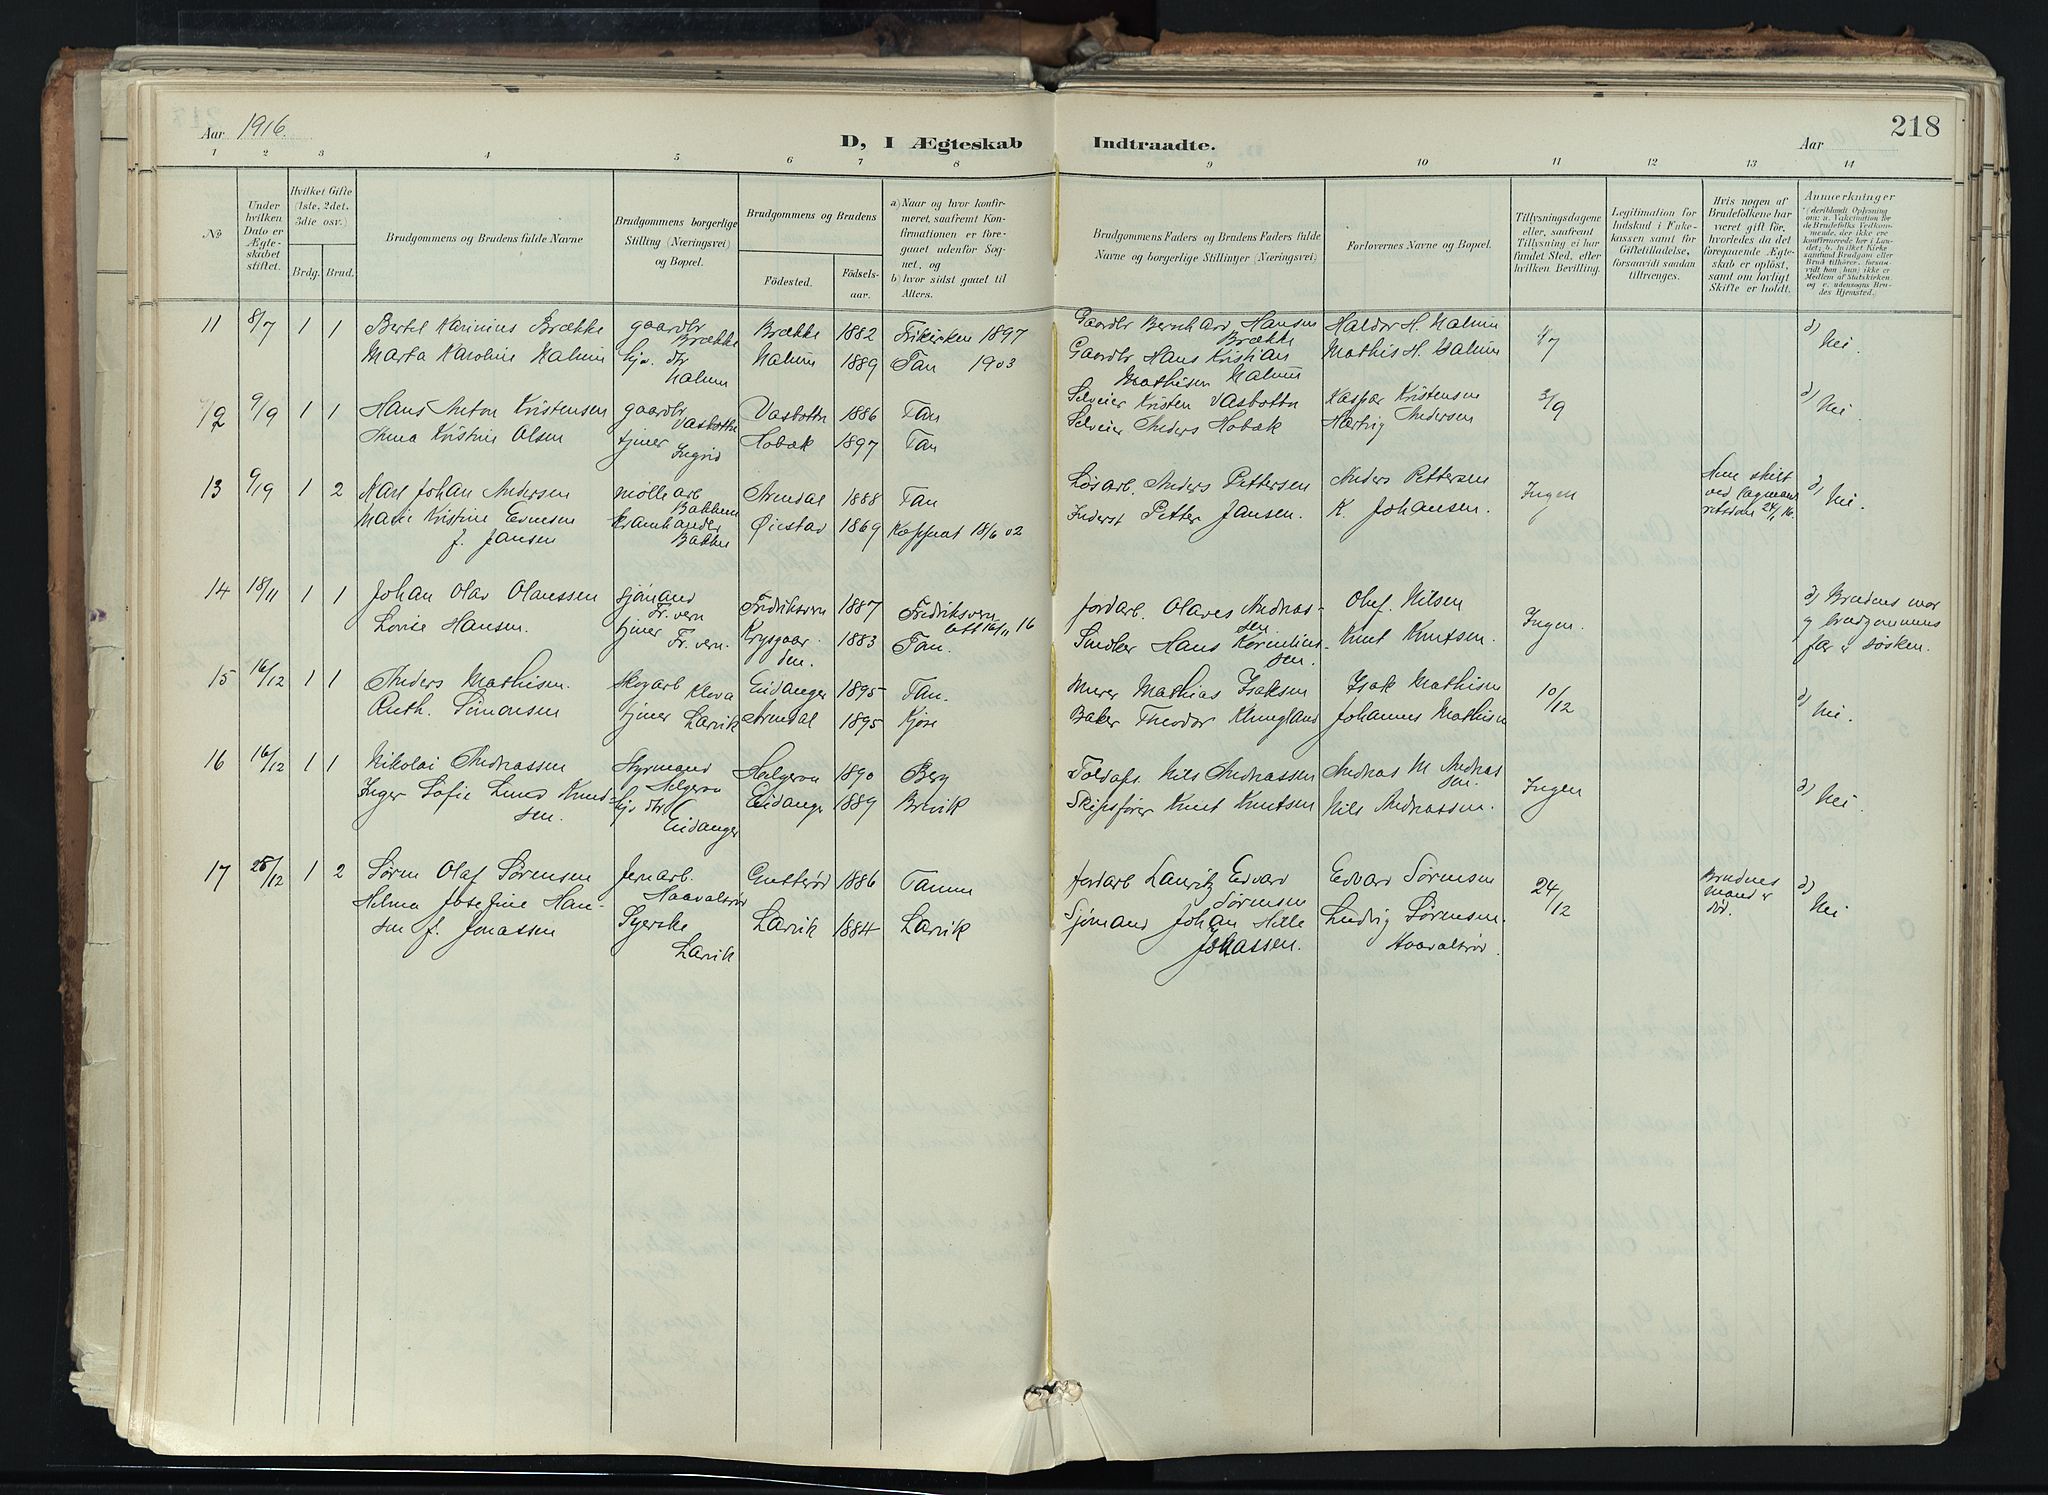 Aar 1916.
D, I Ægteskab Indtraadte.
218
Aar
1 2 3 4 5 6 7 8 9 10 11 12 13 14
No
Under hvilken Dato er Ægteskabet stiftet.
Hvilket Gifte (1ste, 2det, 3die osv.)
Brdg. Brud.
Brudgommens og Brudens fulde Navne
Brudgommens borgerlige Stilling (Næringsvei) og Bopæl.
Brudgommens og Brudens
Fødested. Fødselsaar.
a) Naar og hvor konfirmeret, saafremt Konfirmationen er foregaaet udenfor Sognet, og
b) hvor sidst gaaet til Alters.
Brudgommens Faders og Brudens Faders fulde Navne og borgerlige Stillinger (Næringsvei)
Forlovernes Navne og Bopæl.
Tillysningsdagene eller, saafremt Tillysning ei har fundet Sted, efter hvilken Bevilling.
Legitimation for Indskud i Enkekassen samt for Giftetilladelse, forsaavidt saadan tiltrænges.
Hvis nogen af Brudefolkene har været gift før, hvorledes da det foregaaende Ægteskab er opløst, samt om lovligt Skifte er holdt.
Anmærkninger
11 8/7 1 1 Bertel Karinius Brække gaardbr Brække Brække 1882 Frikirken 1897 Gaardbr Bernhard Hansen Brække Haldor H. Malum d) Nei.
Marta Karoline Malum Malum 1889 Tan 1903 Gaardbr Hans Kristian Mathisen Malum Mathis H. Malum
9/9 1 1 Hans Anton Kristensen gaardbr Vasbottn Vasbottn 1886 Tan Selveier Kristen Vasbottn Kaspar Kristensen 3/9 d) Nei.
Anna Kristine Olsen tjener Ingrid Hobæk 1897 Tan Selveier Anders Hobæk Hartvig Andersen
13 9/9 1 2 Karl Johan Andersen møllearb Bakken Arendal 1888 Tan Løsarb. Anders Pettersen Anders Pettersen Ingen d) Nei.
Marie Kristine Evensen f. Jansen Bakken Øiestad 1869 18/6 02 Inderst Petter Jansen. K Johansen.
14 18/11 1 1 Johan Olav Olaussen sjømand Fr.vern Fredriksvern 1887 Fredriksvern att 16/11 16 Jordarb. Olaves Andreassen Oluf. Nilsen Ingen. d) Brudens mor og brudgommens far er søsken.
Lovise Hansen. tjener Fr.vern. 1883 Tan. Hans Korneliussen. Knut Knutsen.
15 16/12 1 1 Anders Mathisen. skogarb Klova Eidanger 1895 Tan. Murer Mathias Isaksen Isak Mathisen 10/12 d) Nei.
Ruth. Simonsen tjener Larvik Arendal 1895 Kjose Baker Theodor Klungland Johannes Mathisen
16 16/12 1 1 Nikolai Andreassen Styrmand Helgeroa Helgeroa 1890 Berg Toldafs. Nils Andreassen Andreas M Andreassen. Ingen d) Nei
Inger Sofie Lund Knudsen. Eidanger Eidanger 1889 Brevik Skipsfører Knut Knutsen Nils Andreassen.
17 1 2 Søren Olaf Sørensen Jernarb. Haavaltrød 1886 Tanum Jordarb Lauritz Edvard Sørensen Edvard Sørensen 24/12 Brudens mand er død. d) Nei
Hilma Josefine Hansen f. Jonassen Syerske Larvik Larvik 1884 Larvik Sjømand Johan Hille Johassen. Ludvig Sørensen. Haavaltrød.